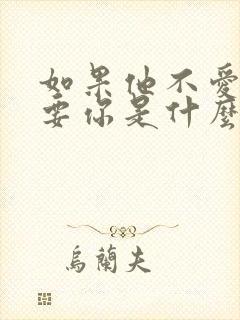 如果他不愛
要你是什麼
烏蘭夫